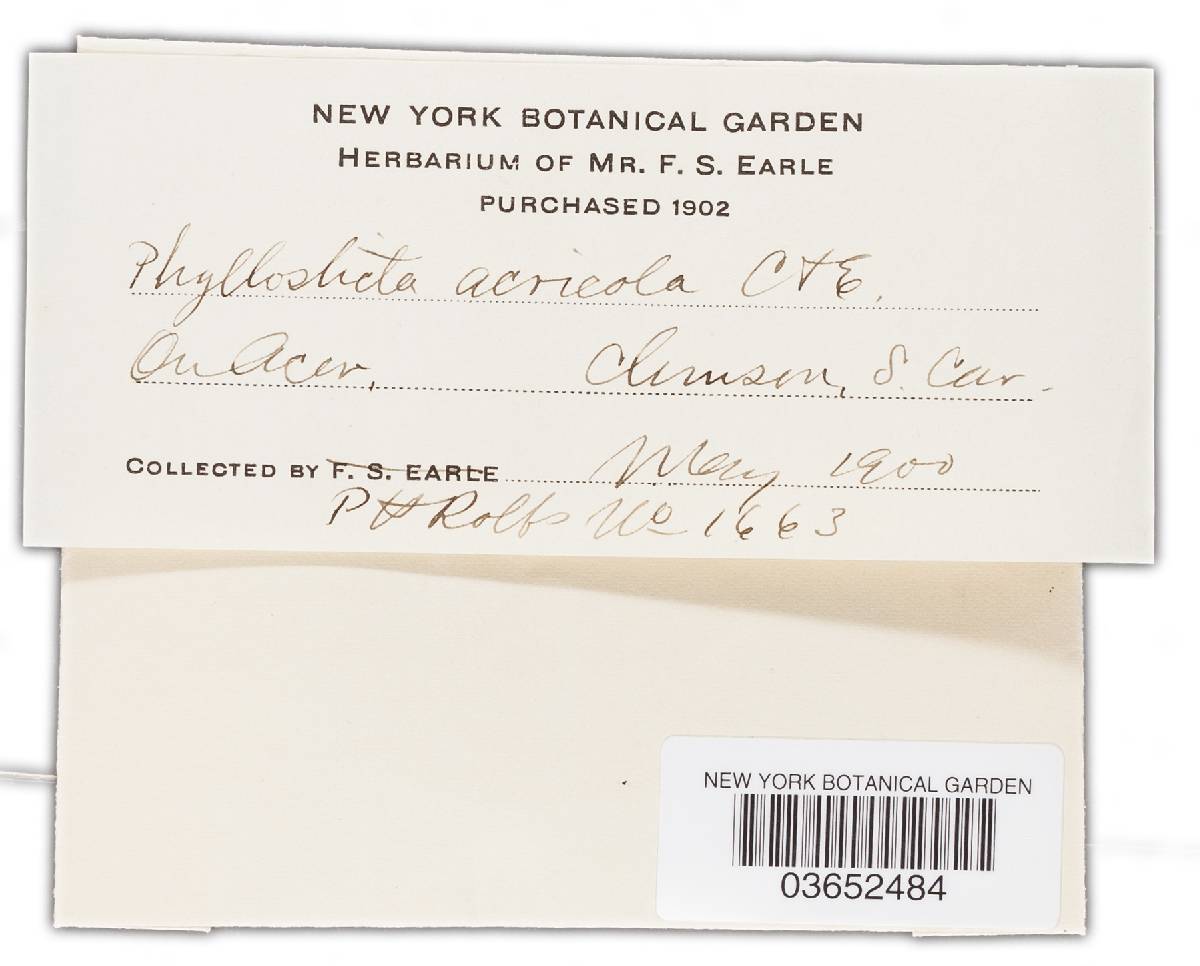 NEW YORK BOTANICAL GARDEN
HERBARIUM OF MR. F. S. EARLE
PURCHASED 1902
Phyllosticta acricola C & E.
On Acer, Clemson, S. Car.
COLLECTED BY F. S. EARLE May 1900
P H Rolfs No 1663
NEW YORK BOTANICAL GARDEN
03652484